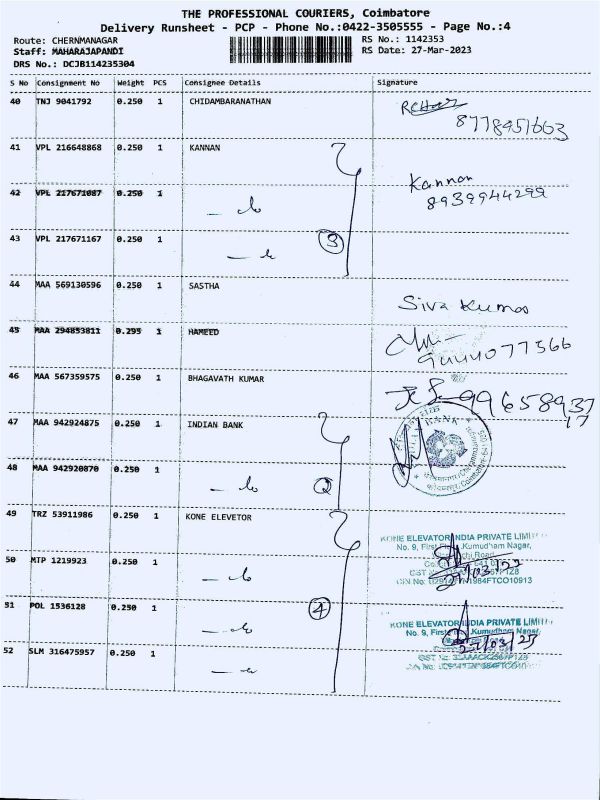 THE PROFESSIONAL COURIERS, Coimbatore
Delivery Runsheet - PCP - Phone No.:0422-3505555 - Page No.:4
Route: CHERNMANAGAR RS No.: 1142353
Staff: MAHARAJAPANDI RS Date: 27-Mar-2023
DRS No.: DCJB114235304
S No Consignment No Weight PCS Consignee Details Signature
40 TNJ 9041792 0.250 1 CHIDAMBARANATHAN
8778451663
41 VPL 216648868 0.250 1 KANNAN
Kannan
8939944299
42 VPL 217671087 0.250 1
43 VPL 217671167 0.250 1 3
44 MAA 569130596 0.250 1 SASTHA
Siva Kumar
45 MAA 294853811 0.295 1 HAMEED
9444077566
46 MAA 567359575 0.250 1 BHAGAVATH KUMAR
47 MAA 942924875 0.250 1 INDIAN BANK
48 MAA 942920870 0.250 1 2
49 TRZ 53911986 0.250 1 KONE ELEVETOR
KONE ELEVATOR INDIA PRIVATE LIMI
No. 9, First Kumudham Nagar,
50 MTP 1219923 0.250 1
51 POL 1536128 0.250 1 4
KONE ELEVATOR INDIA PRIVATE LIMI
No. 9, First Kumudham Nagar,
52 SLM 316475957 0.250 1